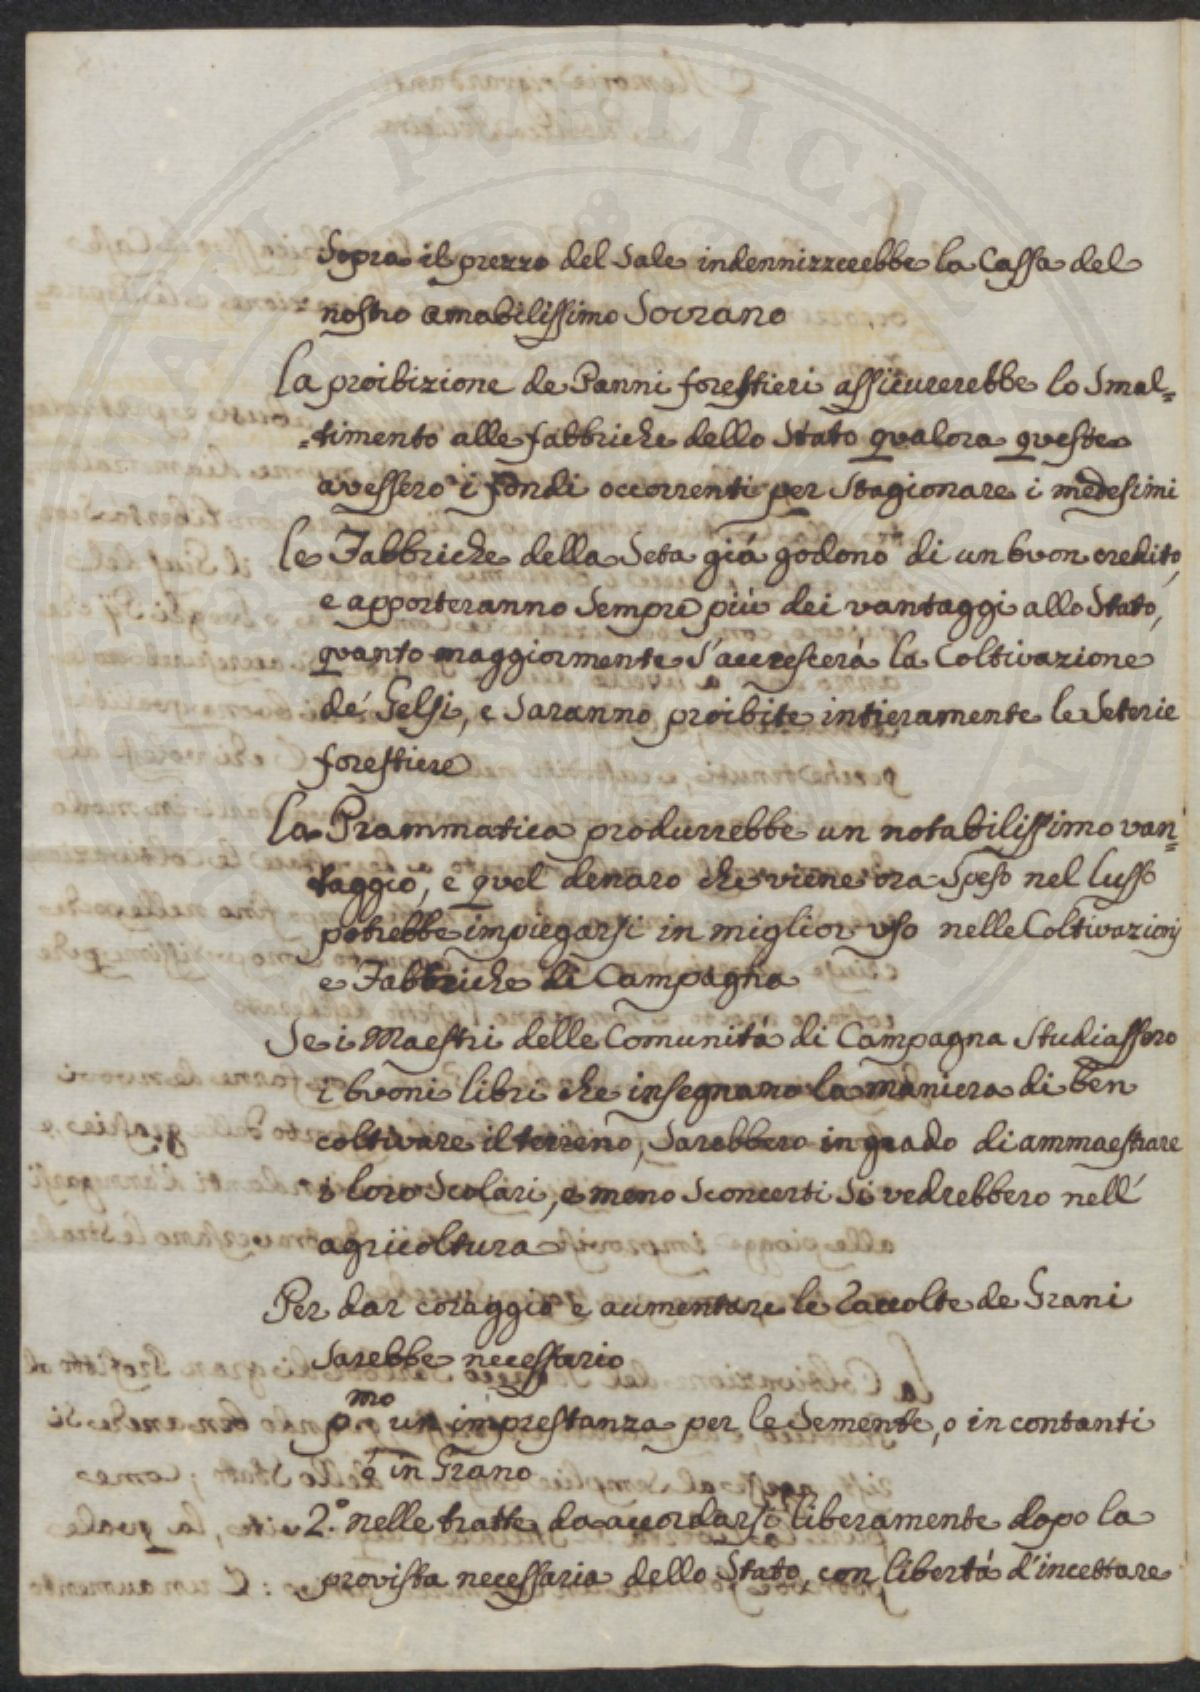 Sopra il prezzo del Sale indennizzerebbe la Cassa del
nostro amabilissimo Sovrano
La proibizione de Panni forestieri assicurerebbe lo Smal=
=timento alle fabbriche dello Stato qualora queste
avessero i fondi occorrenti per Stagionare i medesimi
le Fabbriche della Seta giá godono di un buon credito,
e apporteranno Sempre piú dei vantaggi allo Stato,
quanto maggiormente S'accrescerá la Coltivazione
de' Gelsi, e Saranno proibite intieramente le Seterie
forestiere
La Prammatica produrrebbe un notabilissimo van=
taggio, e quel denaro che viene ora Speso nel lusso
potrebbe impiegarsi in miglior uso nelle Coltivazionj
e Fabbriche di Campagna
Se i Maestri delle Comunitá di Campagna Studiassero
i buoni libri che insegnano la maniera di ben
coltivare il terreno, Sarebbero in grado di ammaestrare
i loro Scolari, e meno Sconcerti Si vedrebbero nell'
agricoltura
Per dar coraggio e aumentare le Raccolte de Grani
Sarebbe necessario
p.mo un imprestanza per le Semente, o in contanti
ó in Grano
2.º nelle tratte da accordarsi liberamente dopo la
provista necessaria dello Stato con libertá d'incettare